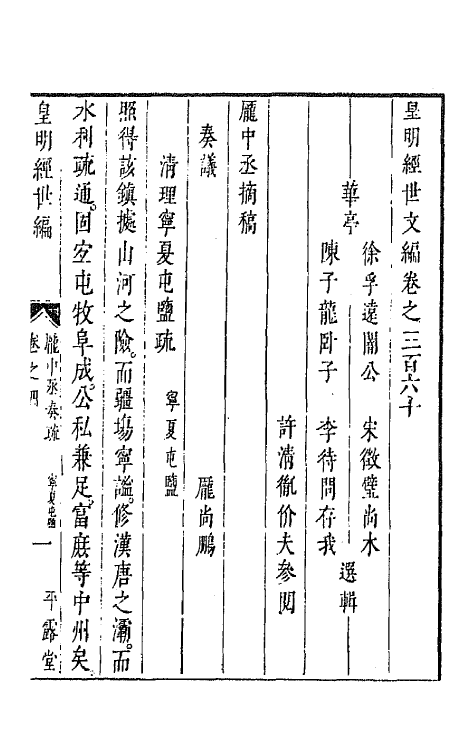 皇明經世文編卷之三百六十
徐孚遠闇公 宋徵璧尚木
華亭 選輯
陳子龍臥子 李待問存我
許清胤价夫參閱
龐中丞摘稿
奏議 龐尚鵬
清理寧夏屯鹽疏 寧夏屯鹽
照得該鎮據山河之險。而疆場寧謐。修漢唐之灞。而
水利疏通。固宜屯牧阜成。公私兼足。富庶等中州矣。
皇明經世編 龐中丞奏疏 卷之四 寧夏屯鹽 一 平露堂